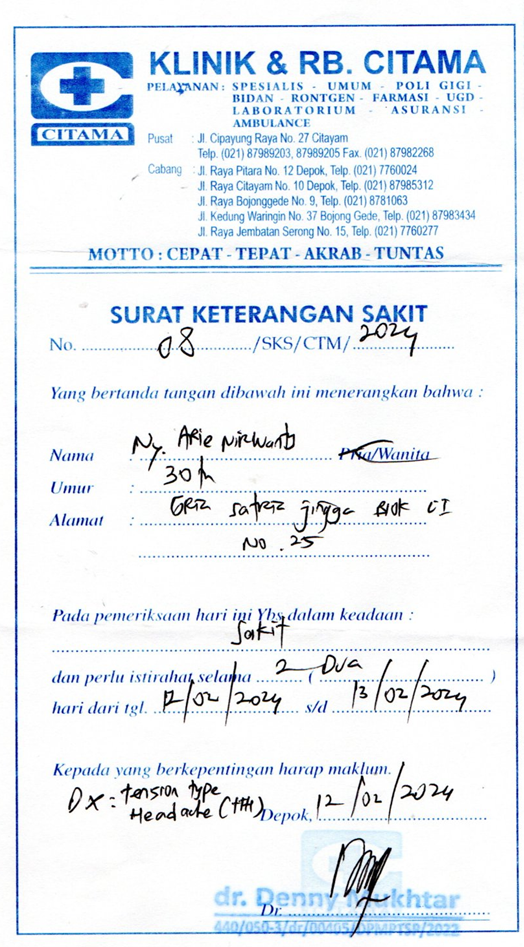 KLINIK & RB. CITAMA
PELAYANAN : SPESIALIS - UMUM - POLI GIGI -
BIDAN - RONTGEN - FARMASI - UGD -
LABORATORIUM - ASURANSI -
AMBULANCE
CITAMA
Pusat : Jl. Cipayung Raya No. 27 Citayam
Telp. (021) 87989203, 87989205 Fax. (021) 87982268
Cabang : Jl. Raya Pitara No. 12 Depok, Telp. (021) 7760024
Jl. Raya Citayam No. 10 Depok, Telp. (021) 87985312
Jl. Raya Bojonggede No. 9, Telp. (021) 8781063
Jl. Kedung Waringin No. 37 Bojong Gede, Telp. (021) 87983434
Jl. Raya Jembatan Serong No. 15, Telp. (021) 7760277
MOTTO : CEPAT - TEPAT - AKRAB - TUNTAS
SURAT KETERANGAN SAKIT
No. 08 /SKS/CTM/ 2024
Yang bertanda tangan dibawah ini menerangkan bahwa :
Nama : Ny. Arie Pria/Wanita
Umur : 30 th
Alamat : Satria jingga Blok CI
No. 25
Pada pemeriksaan hari ini Ybs dalam keadaan :
Sakit
dan perlu istirahat selama 2 ( Dua )
hari dari tgl. 12/02/2024 s/d 13/02/2024
Kepada yang berkepentingan harap maklum.
DX = tension type
Headache (TTH)
Depok, 12/02/2024
dr. Denny Mukhtar
Dr.
440/050-3/dr/00405/DPMPTSP/2022